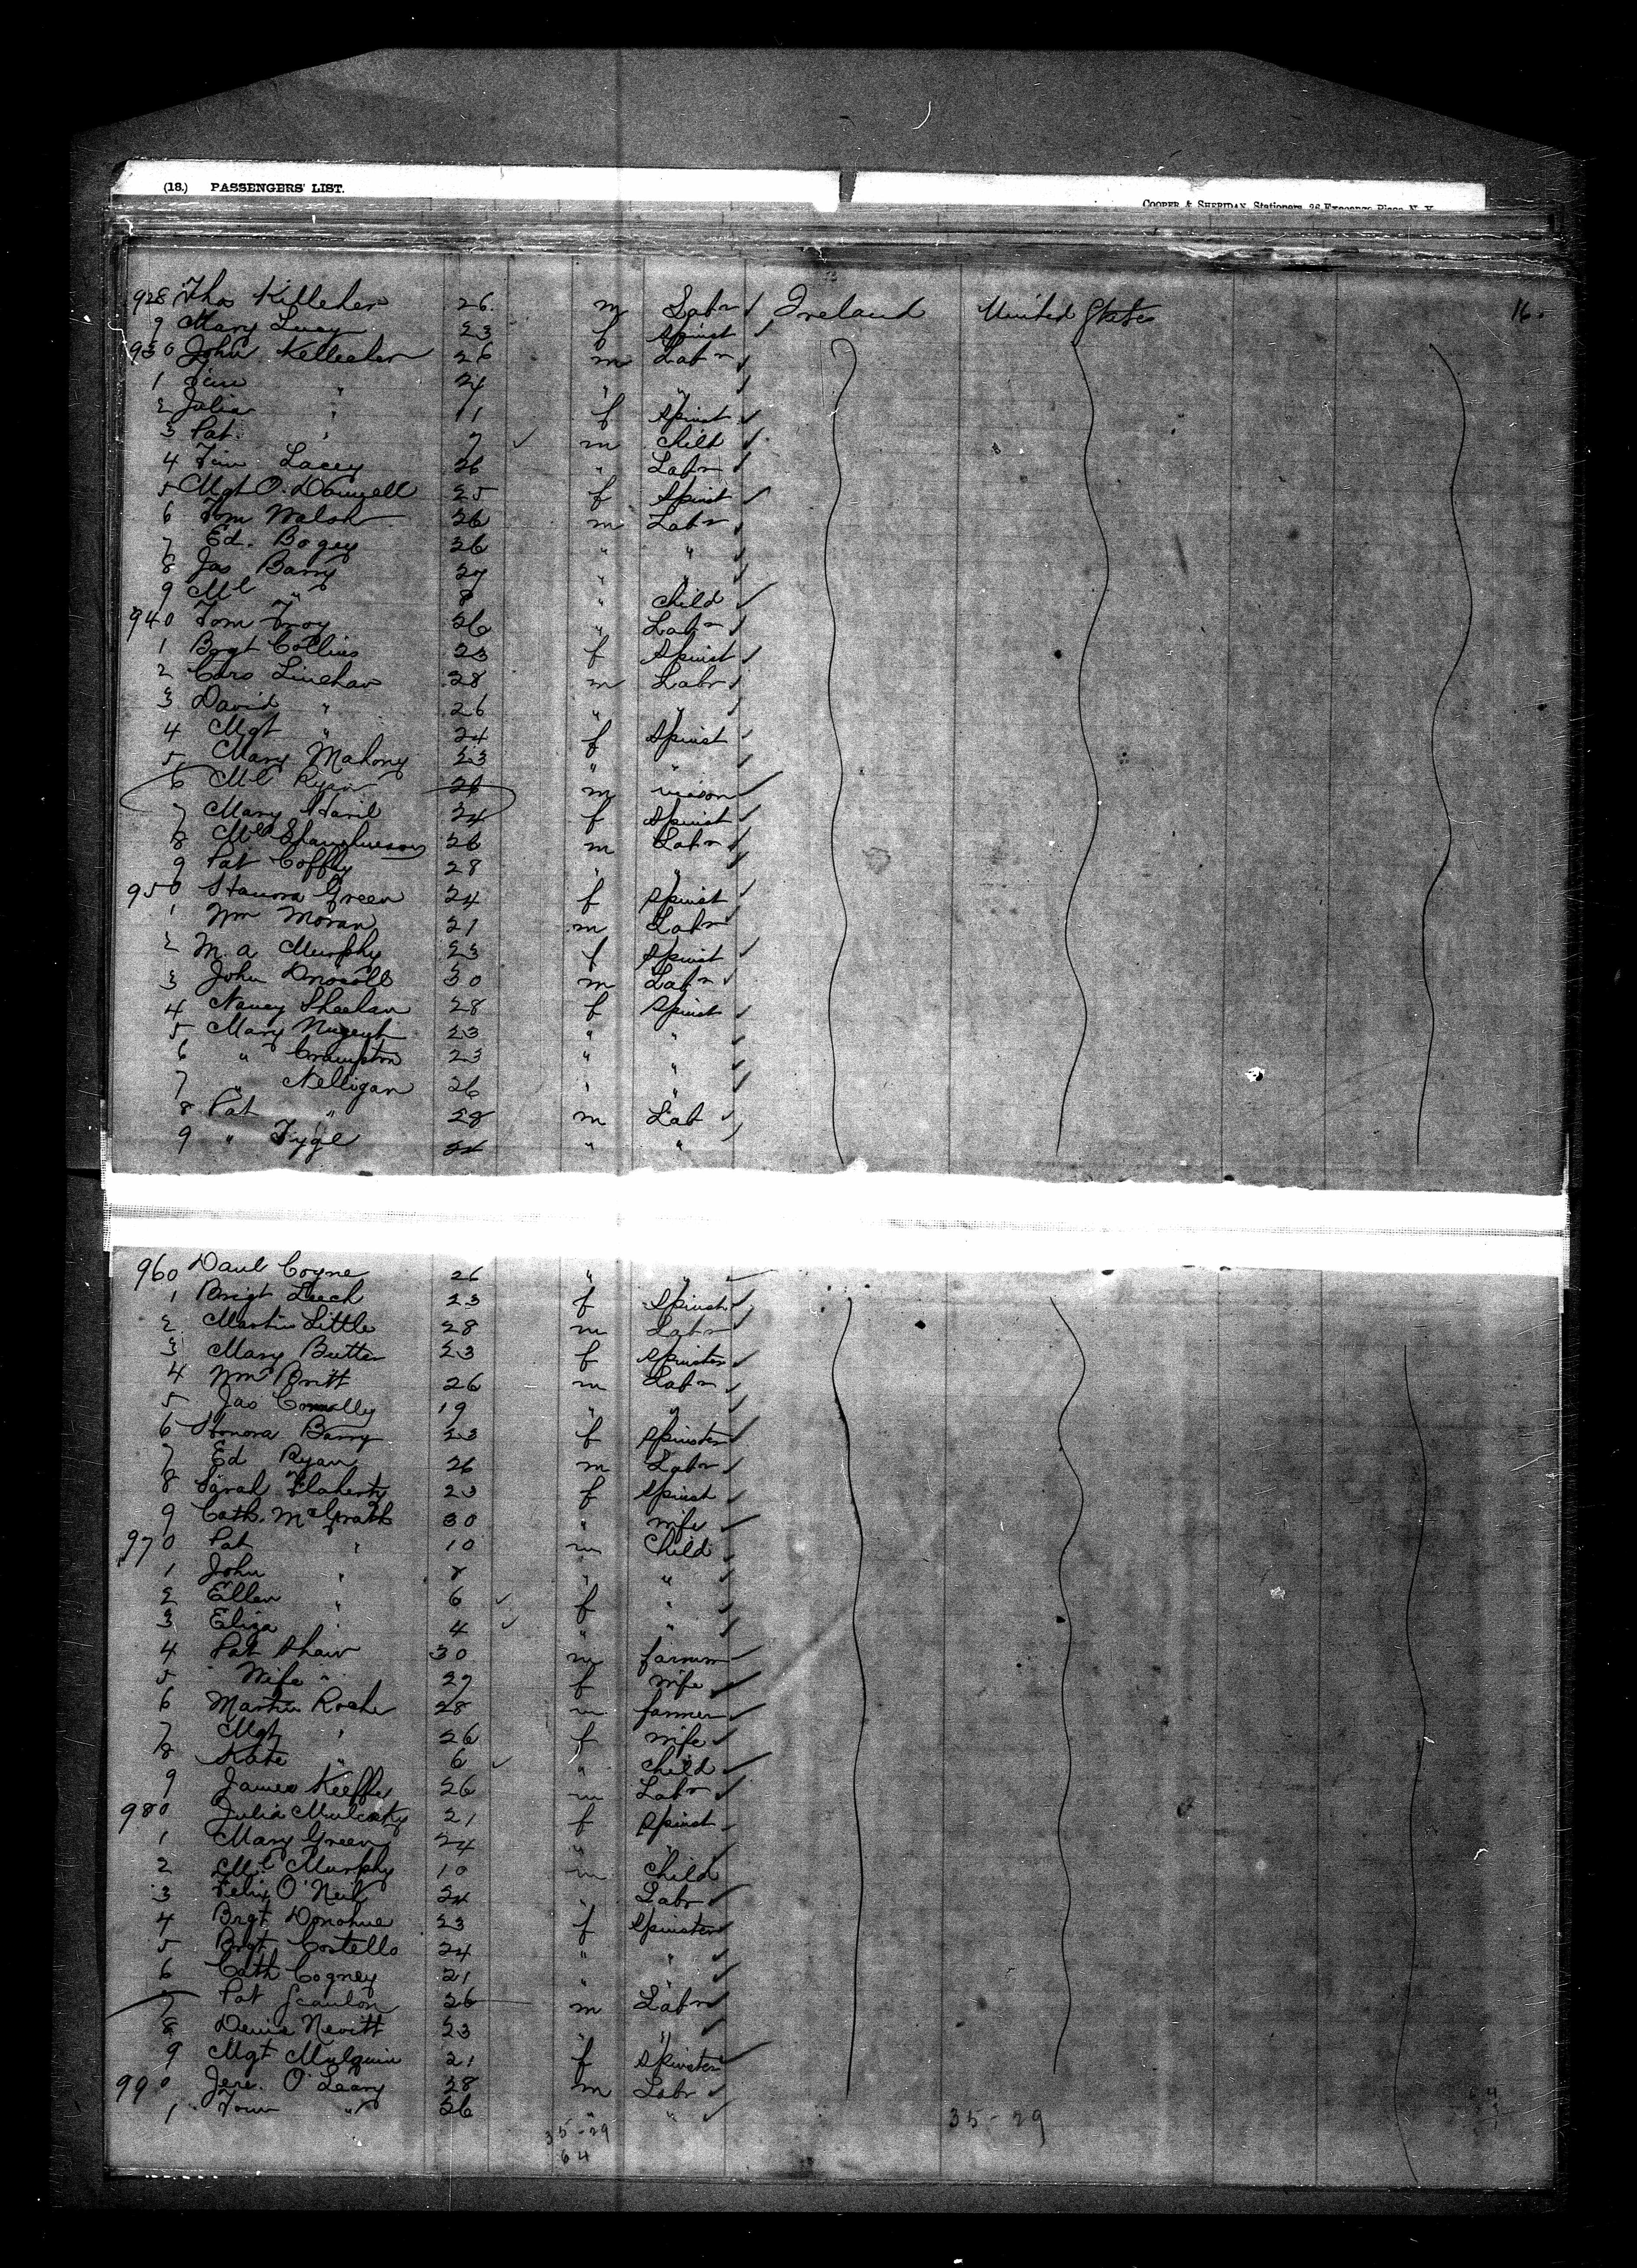 (18.) PASSENGERS' LIST.
COOPER & SHERIDAN, Stationers, 26 Exchange Place, N. Y.
928 Thos Killeher 26 m Labr Ireland United States 16.
9 Mary Lucy 23 f Spinst
930 John Kelleher 26 m Labr
1 Tim " 24 " "
2 Julia " 11 f Spinst
3 Pat " 7 m Child
4 Tim Lacey 26 " Labr
5 Mgt O. Donnell 25 f Spinst
6 Tom Walsh 26 m Labr
7 Ed. Bogey 26 " "
8 Jas Barry 27 " "
9 Ml " 8 " Child
940 Tom Troy 26 " Labr
1 Brgt Collins 23 f Spinst
2 Cors Linehan 28 m Labr
3 David " 26 " "
4 Mgt " 24 f Spinst
5 Mary Mahony 23 " "
6 Ml Ryan 26 m mason
7 Mary 24 f Spinst
8 Ml Shaughneson 26 m Labr
9 Pat Coffey 28 " "
950 Hanora Green 24 f Spinst
1 Wm Moran 21 m Labr
2 M. A Murphy 23 f Spinst
3 John Driscoll 30 m Labr
4 Nancy Sheehan 28 f Spinst
5 Mary Nugent 23 " "
6 " Crampton 23 " "
7 " Nelligan 26 " "
8 Pat " 28 m Lab
9 " Tygl 24 " "
960 Danl Coyne 26 " "
1 Brigt Leech 23 f Spinst
2 Martin Little 28 m Labr
3 Mary Butter 23 f Spinster
4 Wm Britt 26 m Labr
5 Jas Connolly 19 " "
6 Honora Barry 23 f Spinster
7 Ed Ryan 26 m Labr
8 Sarah Flaherty 23 f Spinst
9 Cath. McGrath 30 " wife
970 Pat " 10 m Child
1 John " 8 " "
2 Ellen " 6 f "
3 Eliza " 4 " "
4 Pat Shaw 30 m farmer
5 Wife " 27 f wife
6 Martin Roche 28 m farmer
7 Mgt " 26 f wife
8 Kate " 6 " Child
9 James Keeffe 26 m Labr
980 Julia Mulcahy 21 f Spinst
1 Mary Green 24 " "
2 Ml Murphy 10 m Child
3 Felix O'Neil 24 " Labr
4 Brgt Donohue 23 f Spinster
5 Brgt Costello 24 " "
6 Cath Cogney 21 " "
7 Pat Scanlon 26 m Labr
8 Denis Nevitt 23 " "
9 Mgt Mulquin 21 f Spinster
990 Jere. O'Leary 28 m Labr
1 Tom " 26 " "
35-29 35-29
64